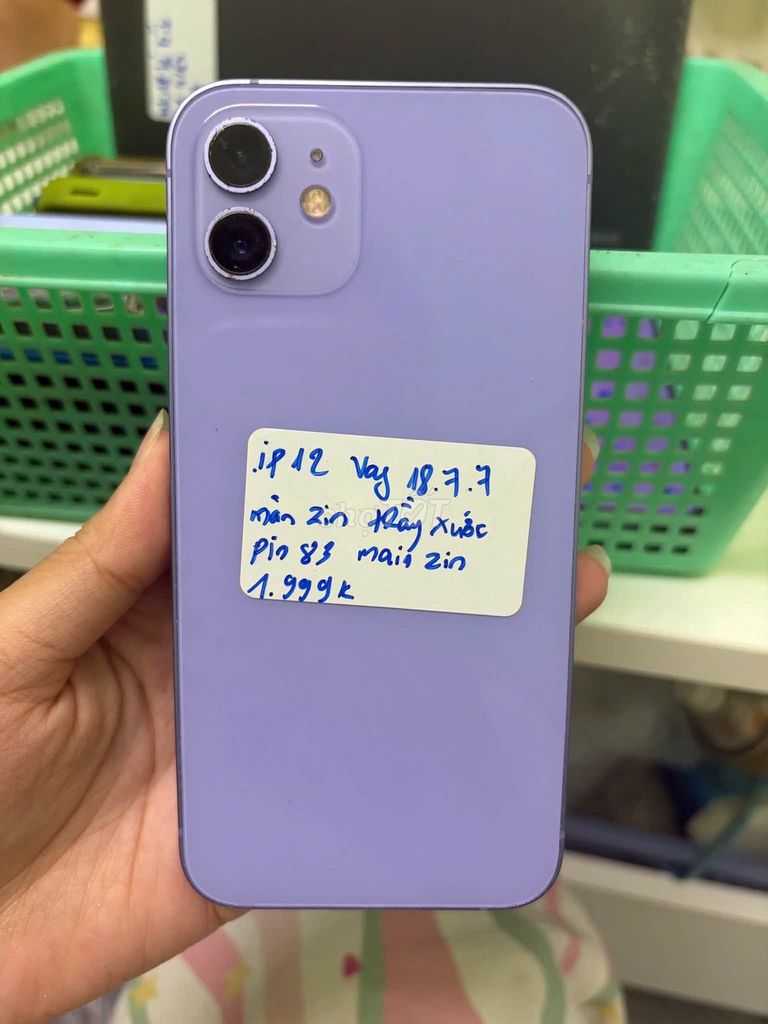 ip 12 Vay 18.7.7
màn zin trầy xước
pin 83 main zin
1.999k